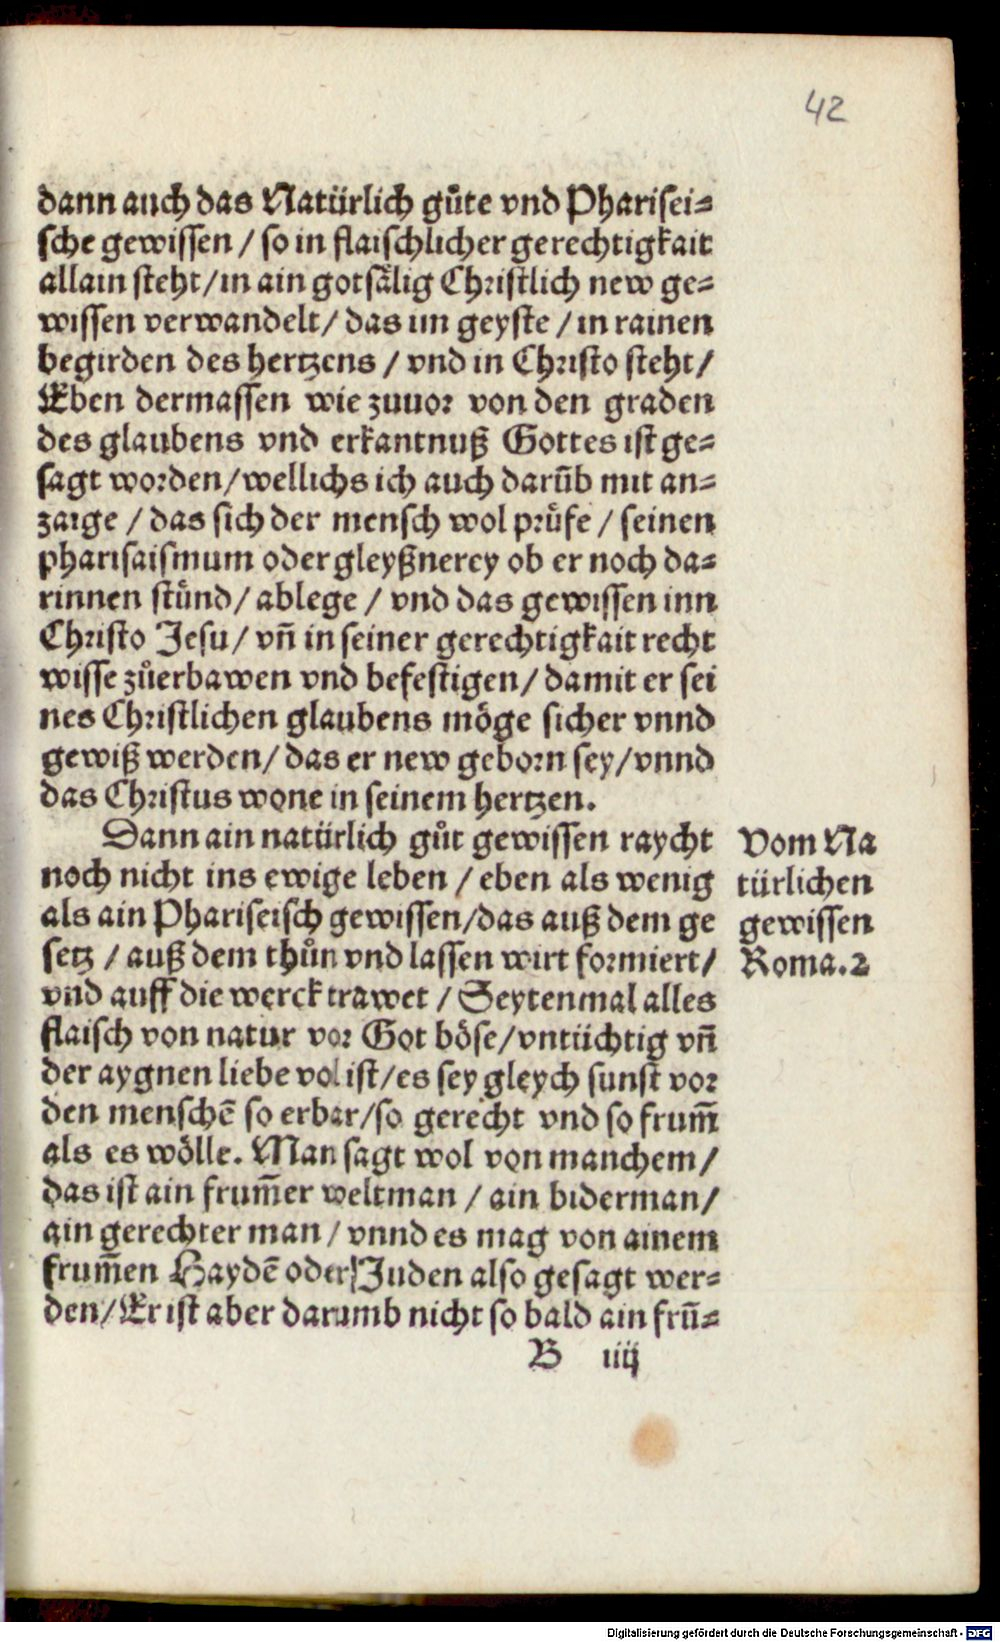 42
dann auch das Natürlich gůte vnd Pharisei⸗
sche gewissen / so in flaischlicher gerechtigkait
allain steht / in ain gotsälig Christlich new ge⸗
wissen verwandelt / das im geyste / in rainen
begirden des hertzens / vnd in Christo steht /
Eben dermassen wie zuuor von den graden
des glaubens vnd erkantnuß Gottes ist ge⸗
sagt worden / wellichs ich auch darũb mit an⸗
zaige / das sich der mensch wol prüfe / seinen
pharisaismum oder gleyßnerey ob er noch da⸗
rinnen stünd / ablege / vnd das gewissen inn
Christo Jesu / vñ in seiner gerechtigkait recht
wisse zůerbawen vnd befestigen / damit er sei
nes Christlichen glaubens möge sicher vnnd
gewiß werden / das er new geborn sey / vnnd
das Christus wone in seinem hertzen.
Dann ain natürlich gůt gewissen raycht
noch nicht ins ewige leben / eben als wenig
als ain Phariseisch gewissen / das auß dem ge
setz / auß dem thůn vnd lassen wirt formiert /
vnd auff die werck trawet / Seytenmal alles
flaisch von natur vor Got böse / vntüchtig vñ
der aygnen liebe vol ist / es sey gleych sunst vor
den menschẽ so erbar / so gerecht vnd so frum̃
als es wölle. Man sagt wol von manchem /
das ist ain frum̃er weltman / ain biderman /
ain gerechter man / vnnd es mag von ainem
frum̃en Haydẽ oder Juden also gesagt wer⸗
den / Er ist aber darumb nicht so bald ain frũ⸗
B iiij
Vom Na
türlichen
gewissen
Roma.2
Digitalisierung gefördert durch die Deutsche Forschungsgemeinschaft - DFG